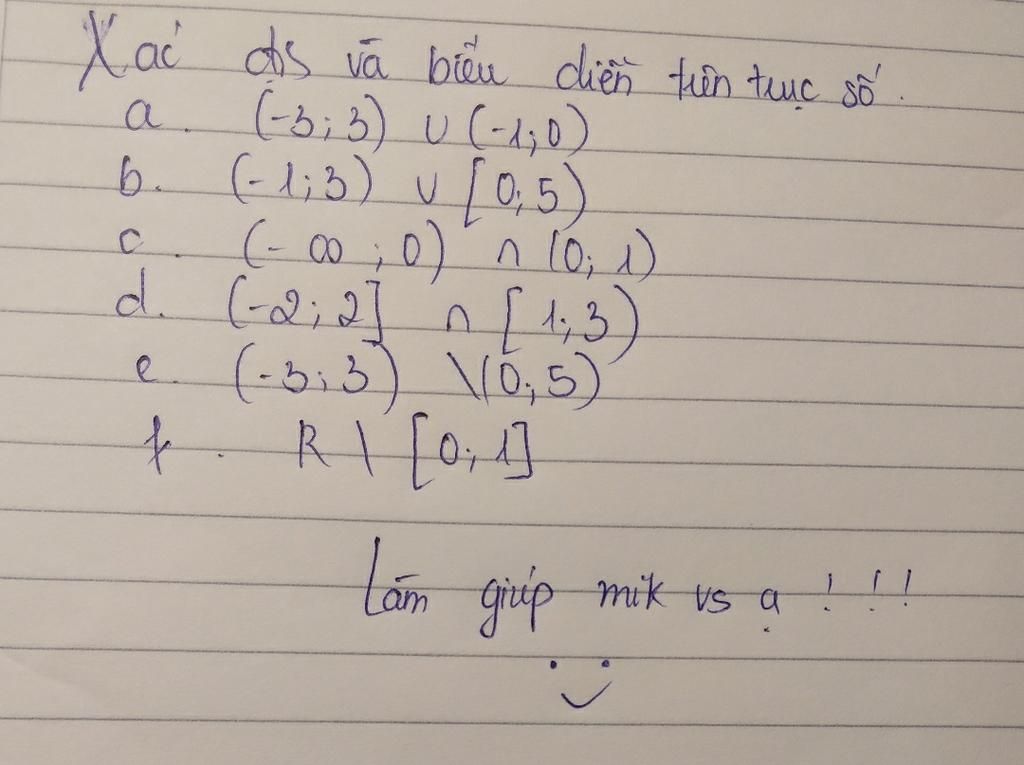 Xác đ̣s và biểu diễn trên trục số.
a. (-3; 3) ∪ (-1; 0)
b. (-1; 3) ∪ [0; 5)
c. (-∞; 0) ∩ (0; 1)
d. (-2; 2] ∩ [1; 3)
e. (-3; 3) \ (0; 5)
f. R \ [0; 1]
Làm giúp mik vs ạ !!!